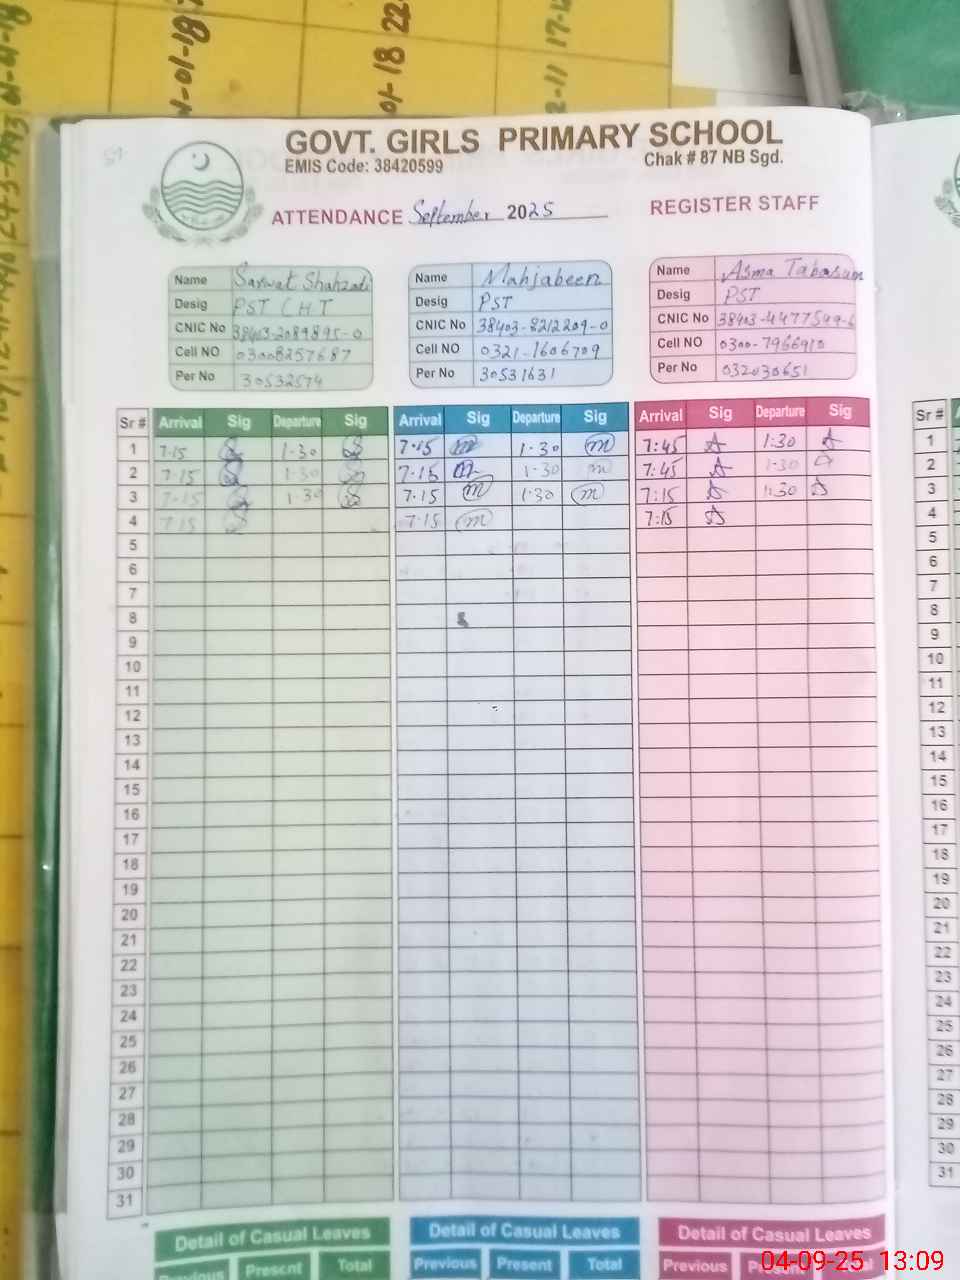 GOVT. GIRLS PRIMARY SCHOOL
EMIS Code: 38420599 Chak # 87 NB Sgd.
ATTENDANCE September 2025 REGISTER STAFF
Name Sarwat Shahzadi
Desig PST CHT
CNIC No 38403-2089895-0
Cell NO 03008257687
Per No 30532574
Name Mahjabeen
Desig PST
CNIC No 38403-8212209-0
Cell NO 0321-1606709
Per No 30531631
Name Asma Tabasum
Desig PST
CNIC No 38403-4477549-6
Cell NO 0300-7966910
Per No 032030651
Sr # Arrival Sig Departure Sig Arrival Sig Departure Sig Arrival Sig Departure Sig Sr #
1 7·15 1·30 7·15 m 1·30 m 7:45 A 1:30 A 1
2 7·15 1·30 7·15 m 1·30 m 7:45 A 1·30 A 2
3 7·15 1·30 7·15 m 1·30 m 7:15 A 1:30 A 3
4 7·15 7·15 m 7:15 A 4
5 5
6 6
7 7
8 8
9 9
10 10
11 11
12 12
13 13
14 14
15 15
16 16
17 17
18 18
19 19
20 20
21 21
22 22
23 23
24 24
25 25
26 26
27 27
28 28
29 29
30 30
31 31
Detail of Casual Leaves Detail of Casual Leaves Detail of Casual Leaves
Previous Present Total Previous Present Total Previous Present Total
04-09-25 13:09